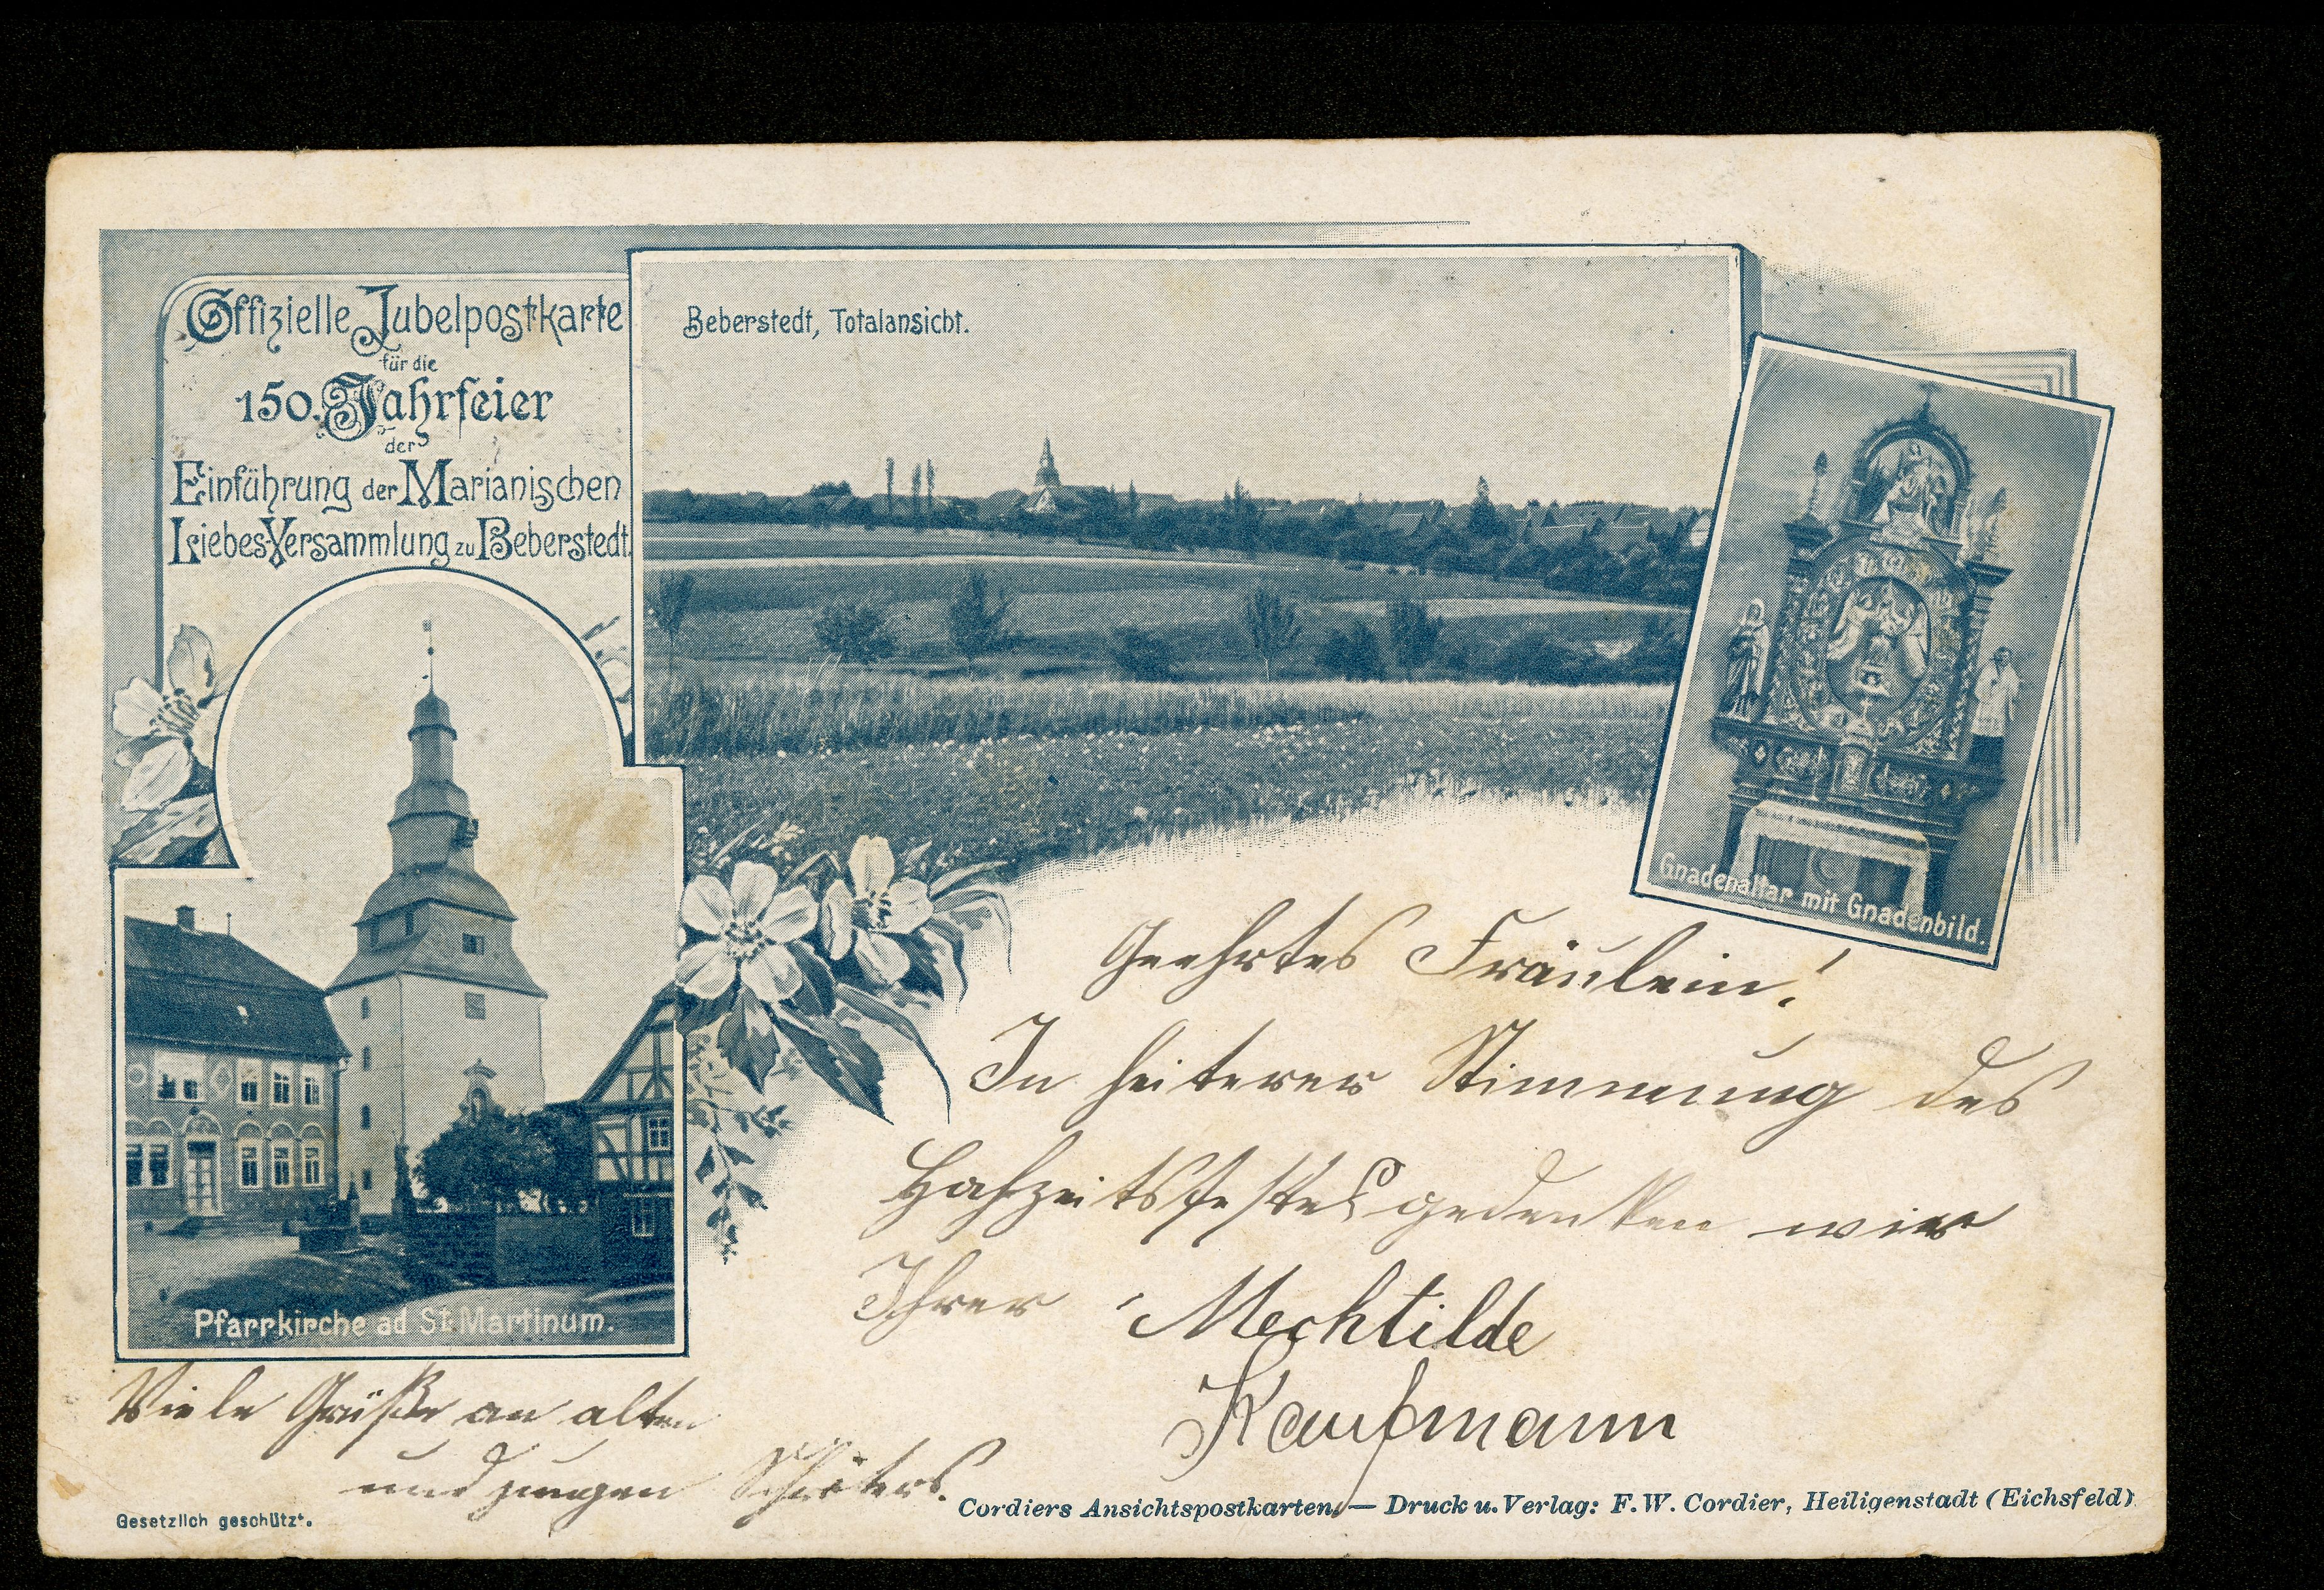 Offizielle Jubelpostkarte
für die
150. Jahrfeier
der
Einführung der Marianischen
Liebes-Versammlung zu Beberstedt.
Beberstedt, Totalansicht.
Gnadenaltar mit Gnadenbild.
Pfarrkirche ad St. Martinum.
Geehrtes Fräulein!
In heiterer Stimmung des
Hochzeitsfestes gedenken wir
Ihrer
Mechtilde
Kaufmann
Viele Grüße an alten
und jungen Schröters.
Gesetzlich geschützt.
Cordiers Ansichtspostkarten. — Druck u. Verlag: F. W. Cordier, Heiligenstadt (Eichsfeld)